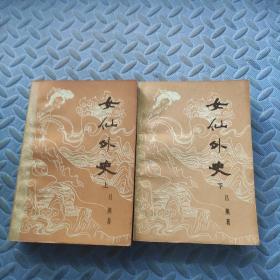 女仙外史
上
吕熊著
女仙外史
下
吕熊著